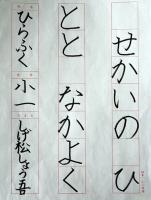 せかいの ひ
とと なかよく
ひらふく
小一
しげ松しょう吾